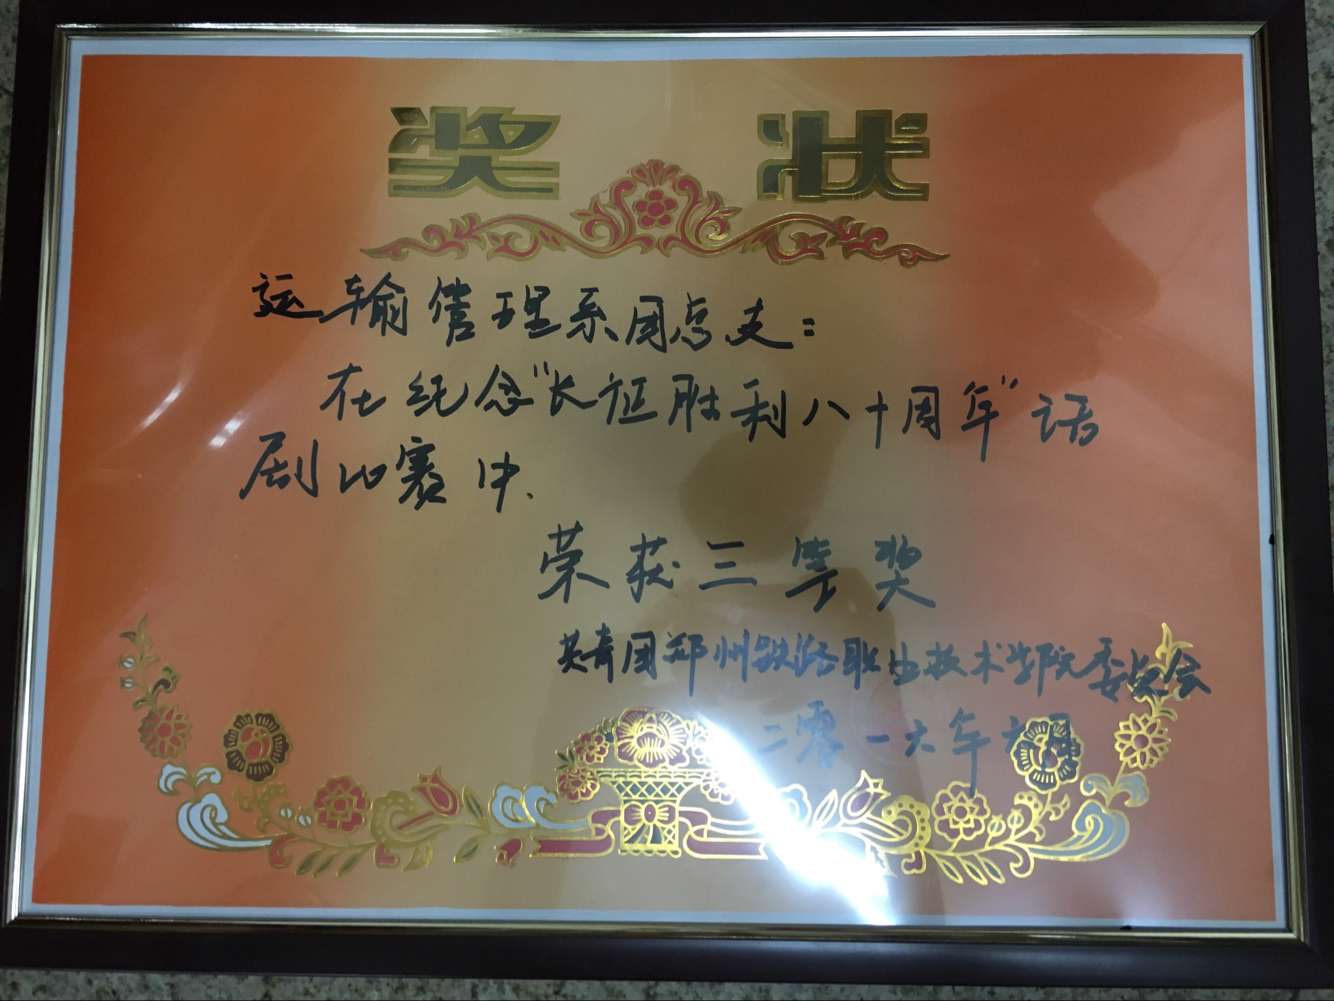 奖状
运输管理系团总支：
在纪念“长征胜利八十周年”话
剧比赛中、
荣获三等奖
共青团郑州铁路职业技术学院委员会
二零一六年六月